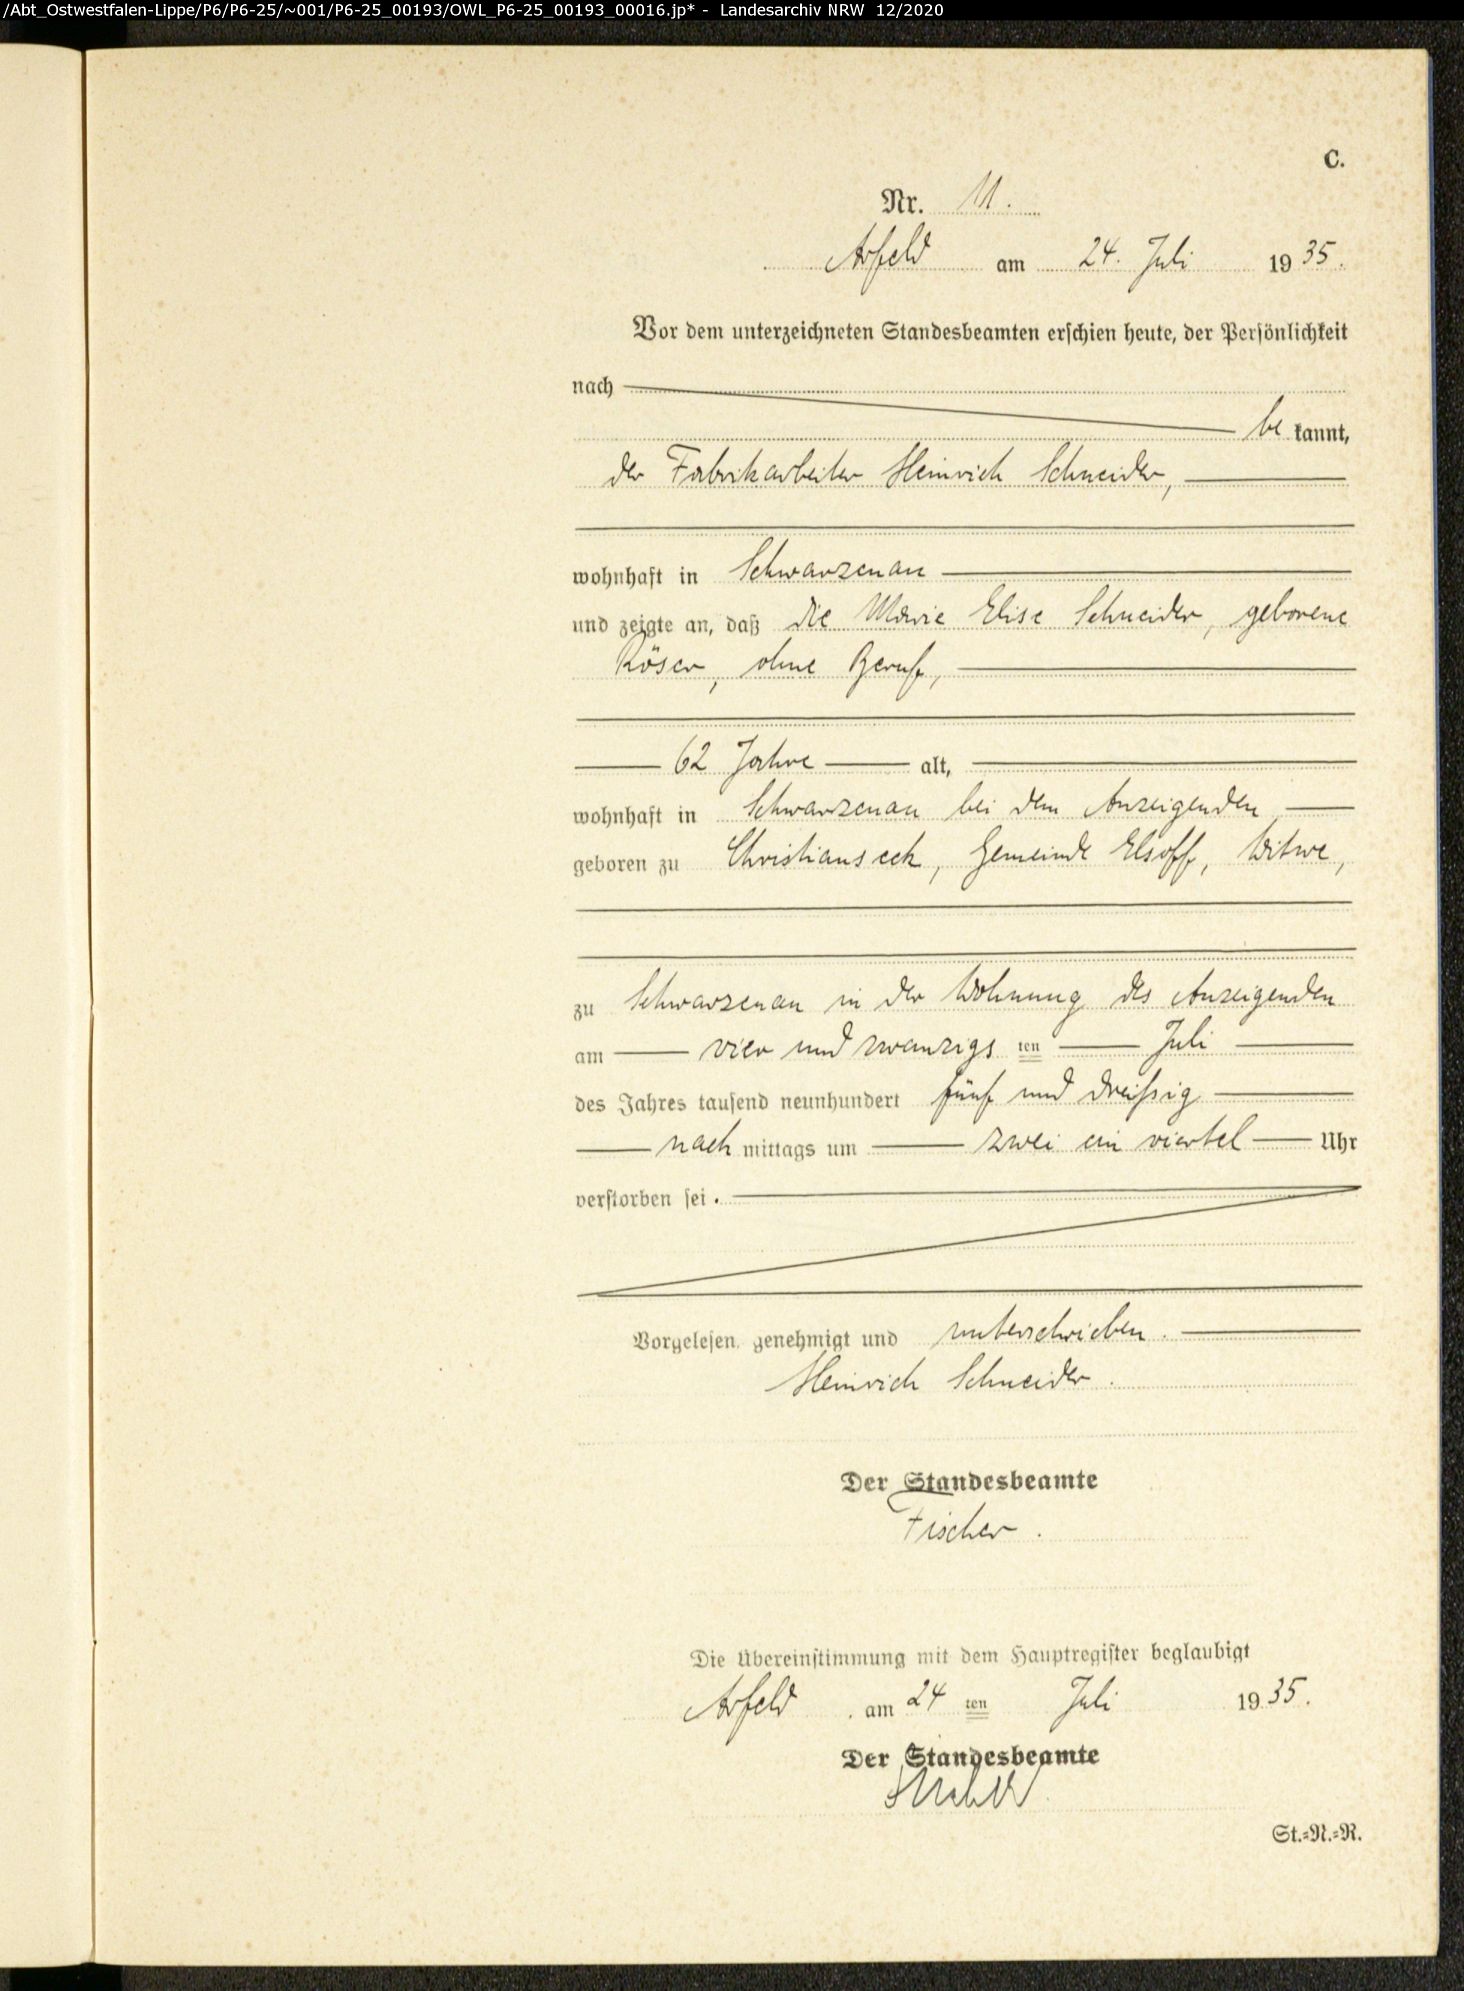 /Abt_Ostwestfalen-Lippe/P6/P6-25/~001/P6-25_00193/OWL_P6-25_00193_00016.jp* - Landesarchiv NRW 12/2020
C.
Nr. 11.
Arfeld am 24. Juli 1935.
Vor dem unterzeichneten Standesbeamten erschien heute, der Persönlichkeit
nach
be kannt,
der Fabrikarbeiter Heinrich Schneider,
wohnhaft in Schwarzenau
und zeigte an, daß die Marie Elise Schneider, geborene
Röser, ohne Beruf,
62 Jahre alt,
wohnhaft in Schwarzenau bei dem Anzeigenden
geboren zu Christianseck, Gemeinde Elsoff, Witwe,
zu Schwarzenau in der Wohnung des Anzeigenden
am vier und zwanzigs ten Juli
des Jahres tausend neunhundert fünf und dreißig
nach mittags um zwei ein viertel Uhr
verstorben sei.
Vorgelesen, genehmigt und unterschrieben.
Heinrich Schneider.
Der Standesbeamte
Fischer.
Die Übereinstimmung mit dem Hauptregister beglaubigt
Arfeld. am 24 ten Juli 1935.
Der Standesbeamte
St.=N.=R.